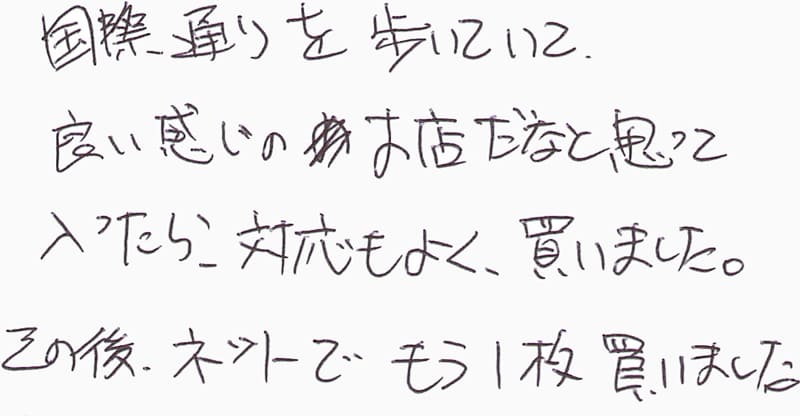 国際通りを歩いていて、
良い感じのお店だなと思って
入ったら、対応もよく、買いました。
その後、ネットでもう1枚買いました